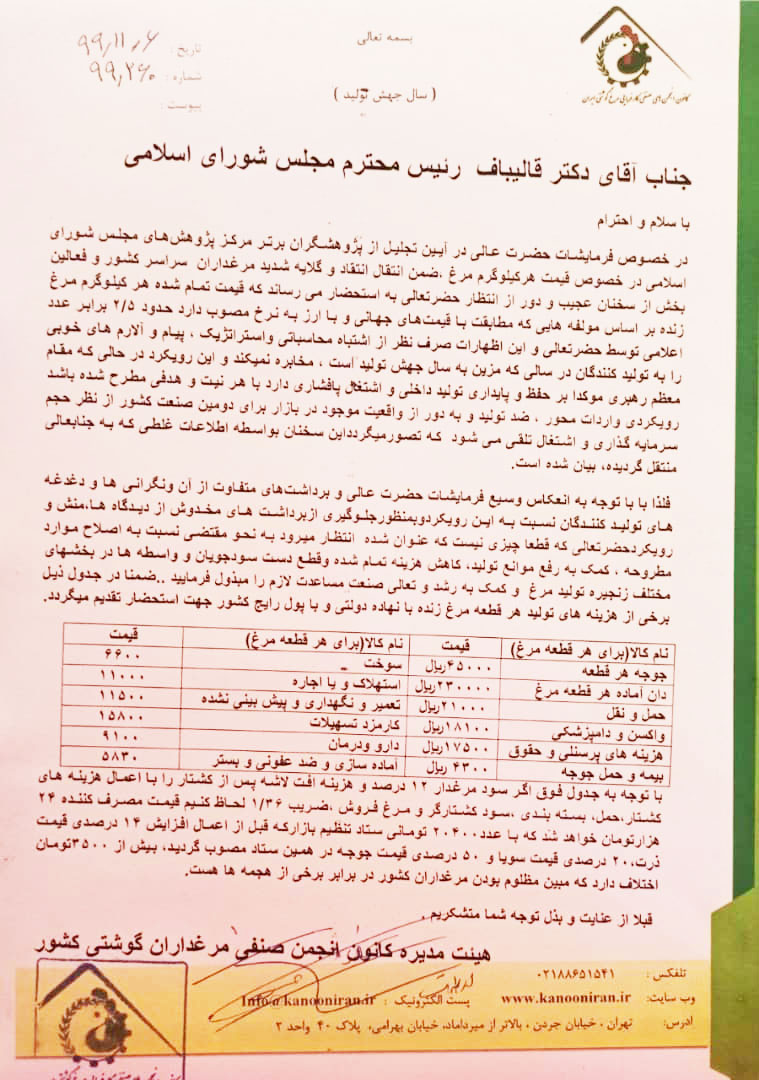 بسمه تعالی
( سال جهش تولید )
تاریخ : ۹۹,۱۱,۰۶
شماره : ۹۹,۲۶۰
پیوست :
کانون انجمن های صنفی کارفرمایی مرغ گوشتی ایران
جناب آقای دکتر قالیباف رئیس محترم مجلس شورای اسلامی
با سلام و احترام
در خصوص فرمایشات حضرت عالی در آیین تجلیل از پژوهشگران برتر مرکز پژوهش‌های مجلس شورای
اسلامی در خصوص قیمت هرکیلوگرم مرغ ،ضمن انتقال انتقاد و گلایه شدید مرغداران سراسر کشور و فعالین
بخش از سخنان عجیب و دور از انتظار حضرتعالی به استحضار می رساند که قیمت تمام شده هر کیلوگرم مرغ
زنده بر اساس مولفه هایی که مطابقت با قیمت‌های جهانی و با ارز به نرخ مصوب دارد حدود ۲/۵ برابر عدد
اعلامی توسط حضرتعالی و این اظهارات صرف نظر از اشتباه محاسباتی واستراتژیک ، پیام و آلارم های خوبی
را به تولید کنندگان در سالی که مزین به سال جهش تولید است ، مخابره نمیکند و این رویکرد در حالی که مقام
معظم رهبری موکدا بر حفظ و پایداری تولید داخلی و اشتغال پافشاری دارد با هر نیت و هدفی مطرح شده باشد
رویکردی واردات محور ، ضد تولید و به دور از واقعیت موجود در بازار برای دومین صنعت کشور از نظر حجم
سرمایه گذاری و اشتغال تلقی می شود که تصورمیگردداین سخنان بواسطه اطلاعات غلطی که به جنابعالی
منتقل گردیده، بیان شده است.
فلذا با با توجه به انعکاس وسیع فرمایشات حضرت عالی و برداشت‌های متفاوت از آن ونگرانی ها و دغدغه
های تولید کنندگان نسبت به این رویکردوبمنظورجلوگیری ازبرداشت های مخدوش از دیدگاه ها،منش و
رویکردحضرتعالی که قطعا چیزی نیست که عنوان شده انتظار میرود به نحو مقتضی نسبت به اصلاح موارد
مطروحه ، کمک به رفع موانع تولید، کاهش هزینه تمام شده وقطع دست سودجویان و واسطه ها در بخشهای
مختلف زنجیره تولید مرغ و کمک به رشد و تعالی صنعت مساعدت لازم را مبذول فرمایید ..ضمنا در جدول ذیل
برخی از هزینه های تولید هر قطعه مرغ زنده با نهاده دولتی و با پول رایج کشور جهت استحضار تقدیم میگردد.
نام کالا(برای هر قطعه مرغ) قیمت نام کالا(برای هر قطعه مرغ) قیمت
جوجه هر قطعه ۴۵۰۰۰ریال سوخت ۶۶۰۰
دان آماده هر قطعه مرغ ۲۳۰۰۰۰ریال استهلاک و یا اجاره ۱۱۰۰۰
حمل و نقل ۲۱۰۰۰ریال تعمیر و نگهداری و پیش بینی نشده ۱۱۵۰۰
واکسن و دامپزشکی ۱۸۱۰۰ریال کارمزد تسهیلات ۱۵۸۰۰
هزینه های پرسنلی و حقوق ۱۷۵۰۰ریال دارو ودرمان ۹۱۰۰
بیمه و حمل جوجه ۴۳۰۰ ریال آماده سازی و ضد عفونی و بستر ۵۸۳۰
با توجه به جدول فوق اگر سود مرغدار ۱۲ درصد و هزینه افت لاشه پس از کشتار را با اعمال هزینه های
کشتار،حمل، بسته بندی ،سود کشتارگر و مرغ فروش ،ضریب ۱/۳۶ لحاظ کنیم قیمت مصرف کننده ۲۴
هزارتومان خواهد شد که با عدد۲۰۴۰۰ تومانی ستاد تنظیم بازارکه قبل از اعمال افزایش ۱۴ درصدی قیمت
ذرت،۲۰ درصدی قیمت سویا و ۵۰ درصدی قیمت جوجه در همین ستاد مصوب گردید، بیش از ۳۵۰۰تومان
اختلاف دارد که مبین مظلوم بودن مرغداران کشور در برابر برخی از هجمه ها هست.
قبلا از عنایت و بذل توجه شما متشکریم .
هیئت مدیره کانون انجمن صنفی مرغداران گوشتی کشور
تلفکس : ۰۲۱۸۸۶۵۱۵۴۱
وب سایت: www.kanooniran.ir پست الکترونیک : Info@kanooniran.ir
آدرس: تهران ، خیابان جردن ، بالاتر از میرداماد، خیابان بهرامی، پلاک ۴۰ واحد ۲